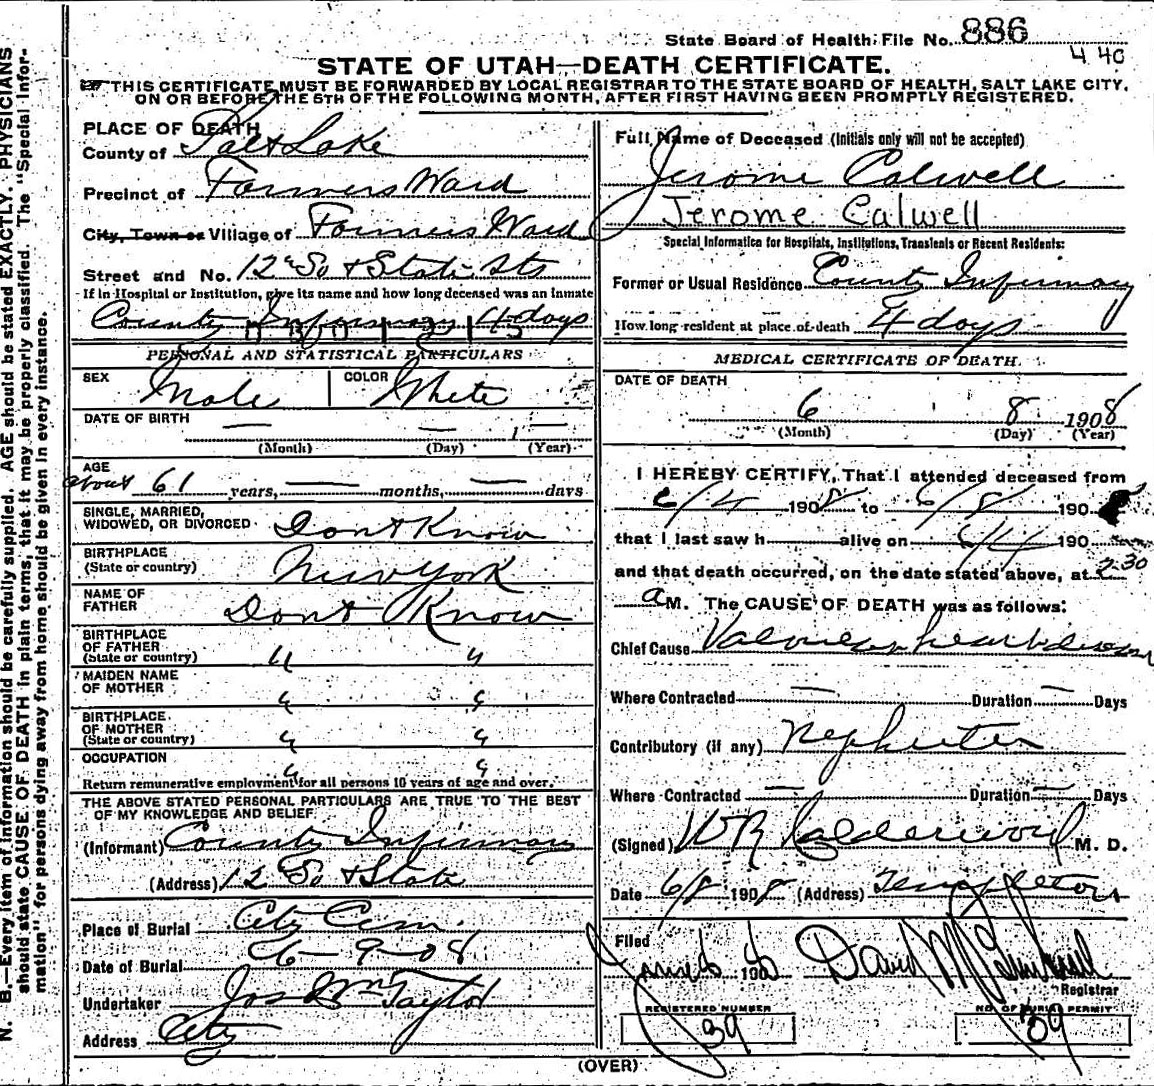 State Board of Health File No. 886
4 40
STATE OF UTAH—DEATH CERTIFICATE.
THIS CERTIFICATE MUST BE FORWARDED BY LOCAL REGISTRAR TO THE STATE BOARD OF HEALTH, SALT LAKE CITY,
ON OR BEFORE THE 5TH OF THE FOLLOWING MONTH, AFTER FIRST HAVING BEEN PROMPTLY REGISTERED.
PLACE OF DEATH
County of Salt Lake
Precinct of Farmers Ward
City, Town or Village of Farmers Ward
Street and No. 12 So & State Sts
If in Hospital or Institution, give its name and how long deceased was an inmate
County Infirmary 4 days
PERSONAL AND STATISTICAL PARTICULARS
SEX Male COLOR White
DATE OF BIRTH — — 1 —
(Month) (Day) (Year)
AGE
about 61 years, — months, — days
SINGLE, MARRIED,
WIDOWED, OR DIVORCED Dont Know
BIRTHPLACE
(State or country) New York
NAME OF
FATHER Dont Know
BIRTHPLACE
OF FATHER
(State or country) " "
MAIDEN NAME
OF MOTHER " "
BIRTHPLACE
OF MOTHER
(State or country) " "
OCCUPATION " "
Return remunerative employment for all persons 10 years of age and over.
THE ABOVE STATED PERSONAL PARTICULARS ARE TRUE TO THE BEST
OF MY KNOWLEDGE AND BELIEF
(Informant) County Infirmary
(Address) 12 So & State
Place of Burial City Cem.
Date of Burial 6-9-08
Undertaker Jos Wm Taylor
Address City
Full Name of Deceased (Initials only will not be accepted)
Jerome Calwell
Jerome Calwell
Special Information for Hospitals, Institutions, Transients or Recent Residents:
Former or Usual Residence County Infirmary
How long resident at place of death 4 days
MEDICAL CERTIFICATE OF DEATH.
DATE OF DEATH
6 8 1908
(Month) (Day) (Year)
I HEREBY CERTIFY, That I attended deceased from
6/4 1908 to 6/8 190
that I last saw h alive on 6/4 190
and that death occurred, on the date stated above, at 2:30
a M. The CAUSE OF DEATH was as follows:
Chief Cause Valvular heart disease
Where Contracted — Duration — Days
Contributory (if any) Nephritis
Where Contracted — Duration — Days
(Signed) WR Calderwood M. D.
Date 6/8 1908 (Address) Templeton
Filed June 190 David M
Registrar
REGISTERED NUMBER
39
NO. OF BURIAL PERMIT
39
(OVER)
N. B.—Every item of information should be carefully supplied. AGE should be stated EXACTLY. PHYSICIANS
should state CAUSE OF DEATH in plain terms, that it may be properly classified. The "Special Infor-
mation" for persons dying away from home should be given in every instance.